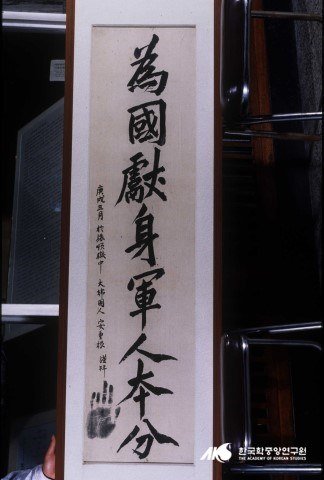 為國獻身軍人本分
庚戌三月 於旅順獄中 大韓國人 安重根 謹拜
AKS 한국학중앙연구원
THE ACADEMY OF KOREAN STUDIES